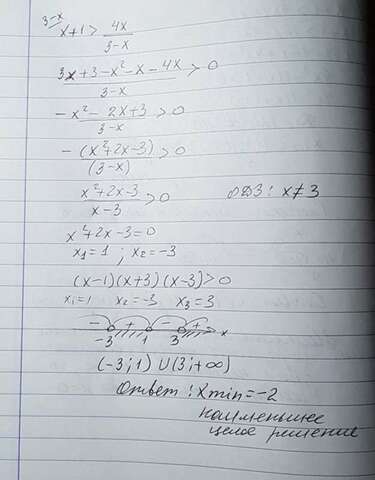 3-x/ x+1 > 4x/(3-x)
(3x+3-x²-x-4x)/(3-x) > 0
(-x²-2x+3)/(3-x) > 0
-(x²+2x-3)/(3-x) > 0
(x²+2x-3)/(x-3) > 0 ОДЗ: x≠3
x²+2x-3=0
x₁=1 ; x₂=-3
(x-1)(x+3)(x-3)>0
x₁=1 x₂=-3 x₃=3
- + - +
-3 1 3 x
(-3;1) U(3;+∞)
Ответ: Xmin=-2
наименьшее
целое решение